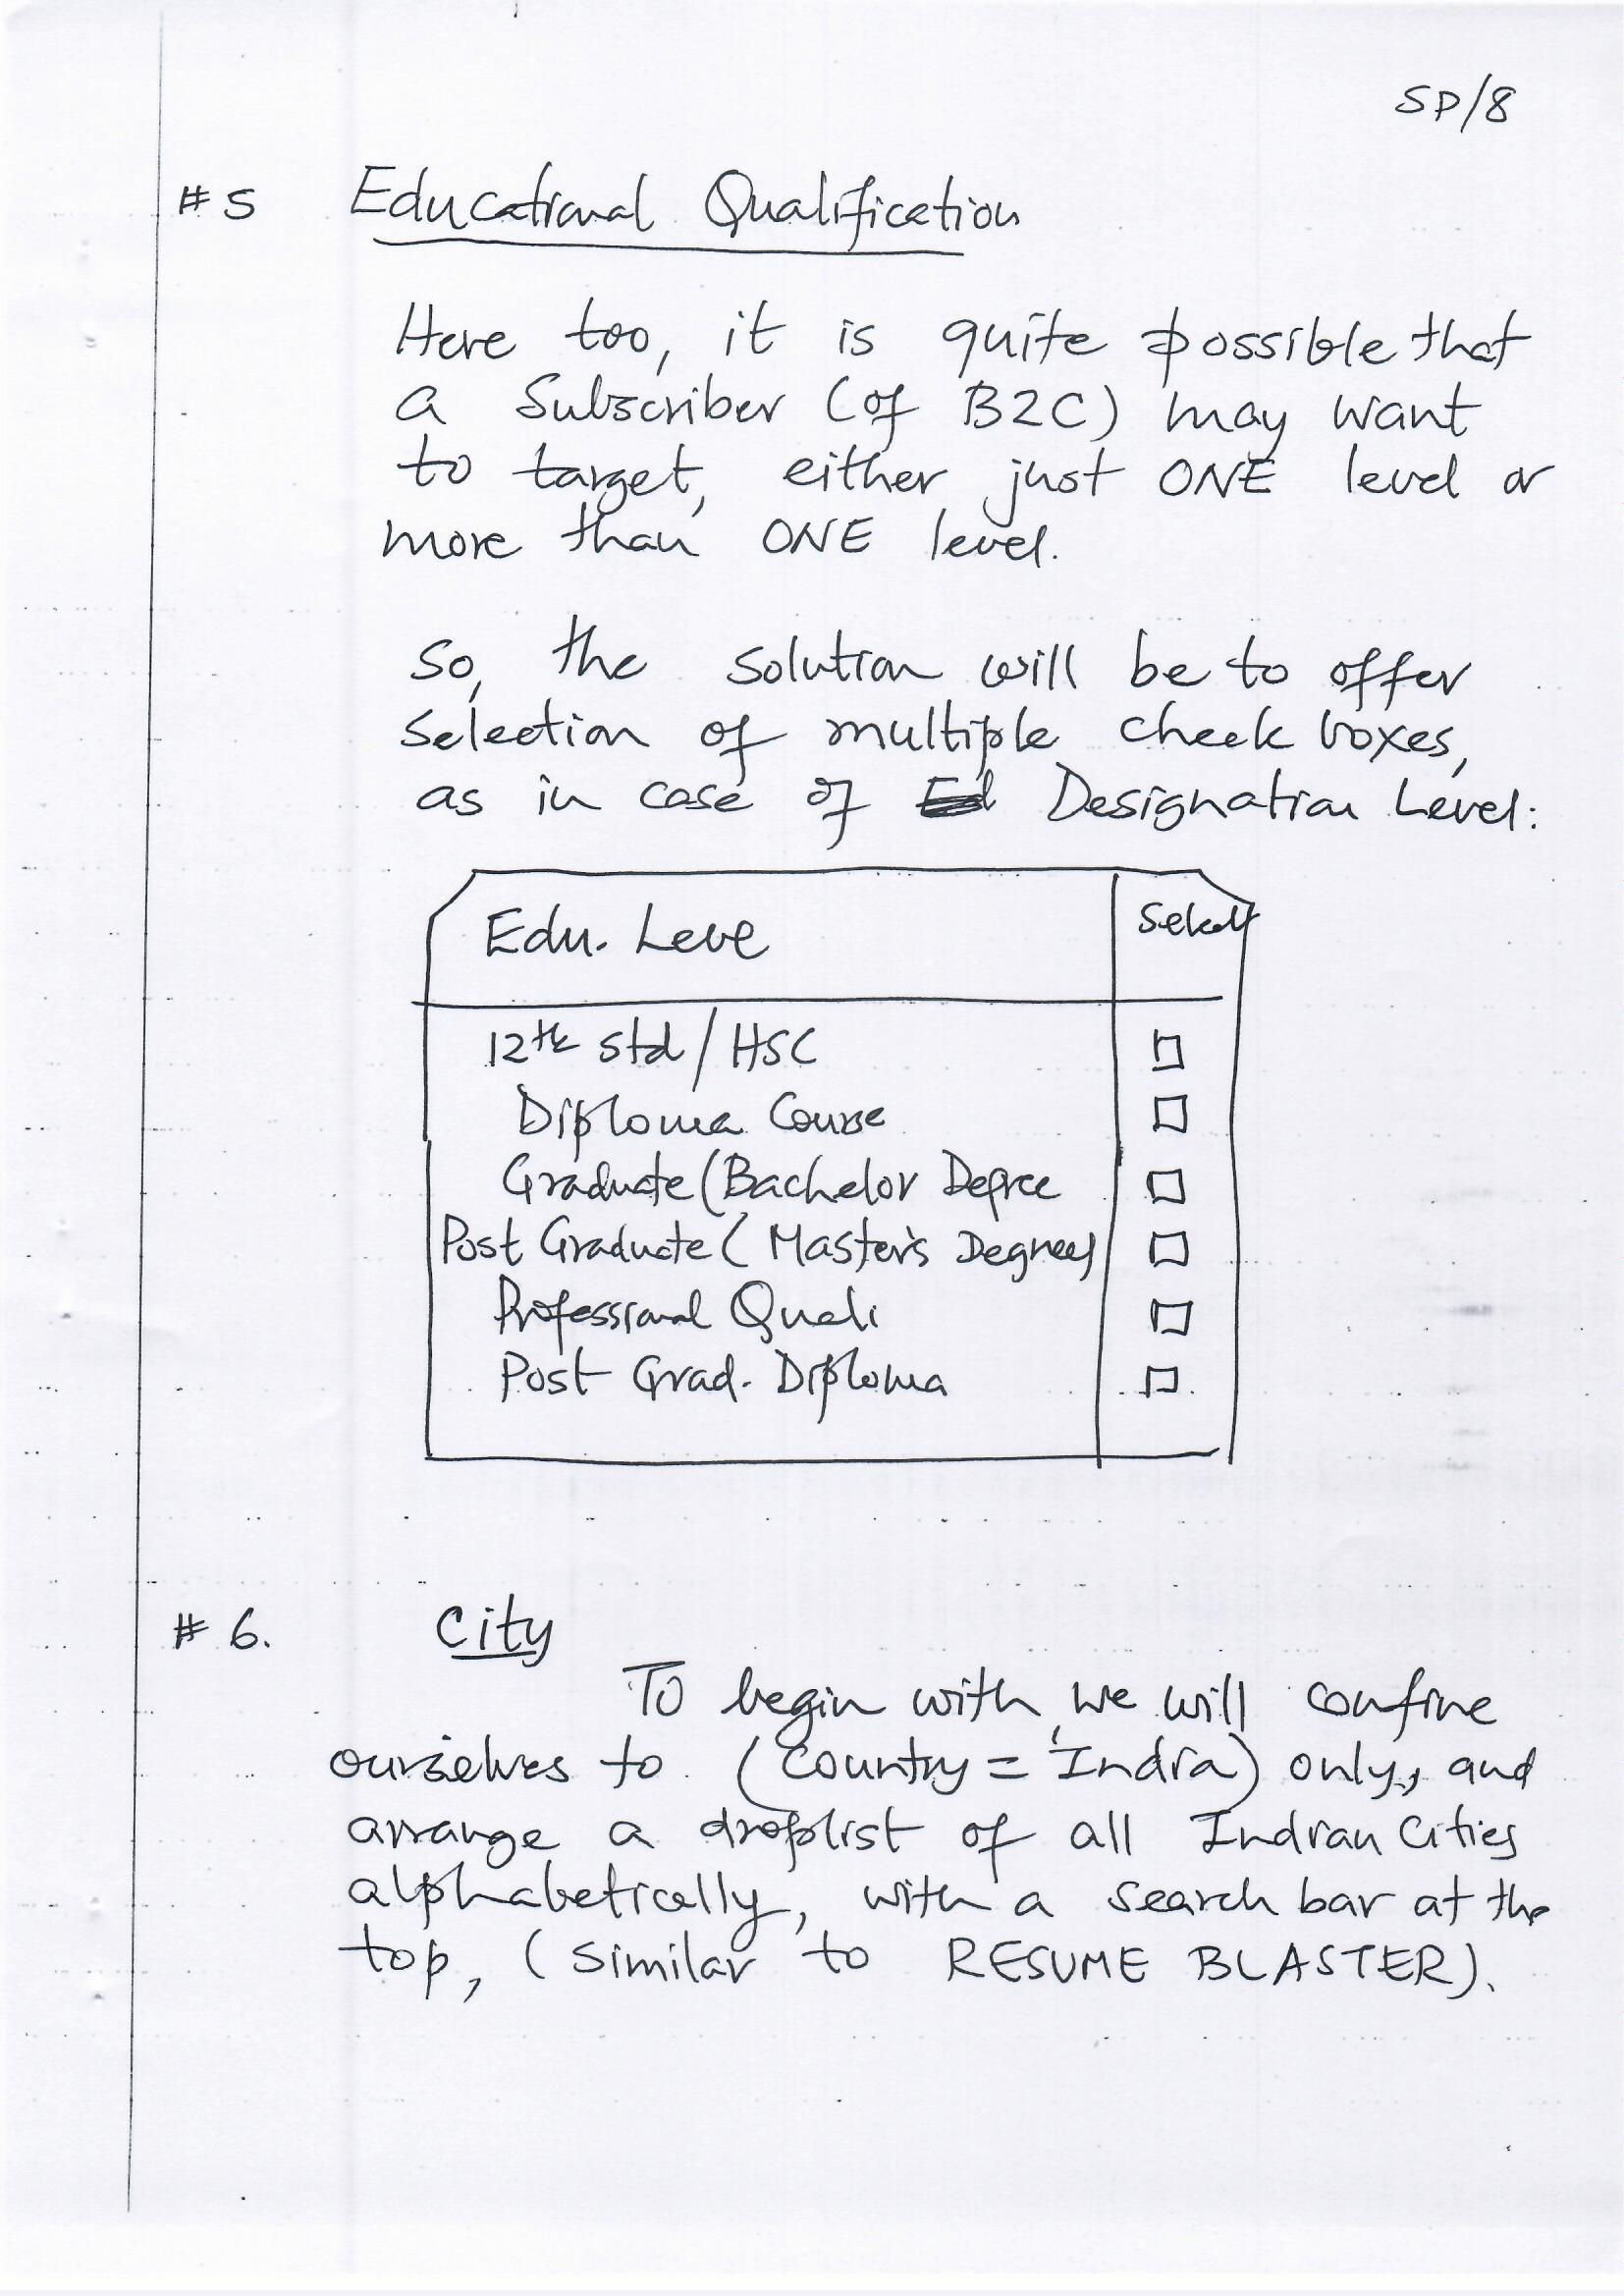 SP/8
#5 Educational Qualification
Here too, it is quite possible that
a Subscriber (of B2C) may want
to target, either just ONE level or
more than ONE level.
So, the solution will be to offer
selection of multiple check boxes,
as in case of Ed Designation Level:
Edu. Leve Select
12th std / HSC
Diploma Course
Graduate (Bachelor Degree
Post Graduate (Master's Degree)
Professional Quali
Post Grad. Diploma
#6. City
To begin with, we will confine
ourselves to (Country = India) only, and
arrange a droplist of all Indian Cities
alphabetically, with a search bar at the
top, (similar to RESUME BLASTER).